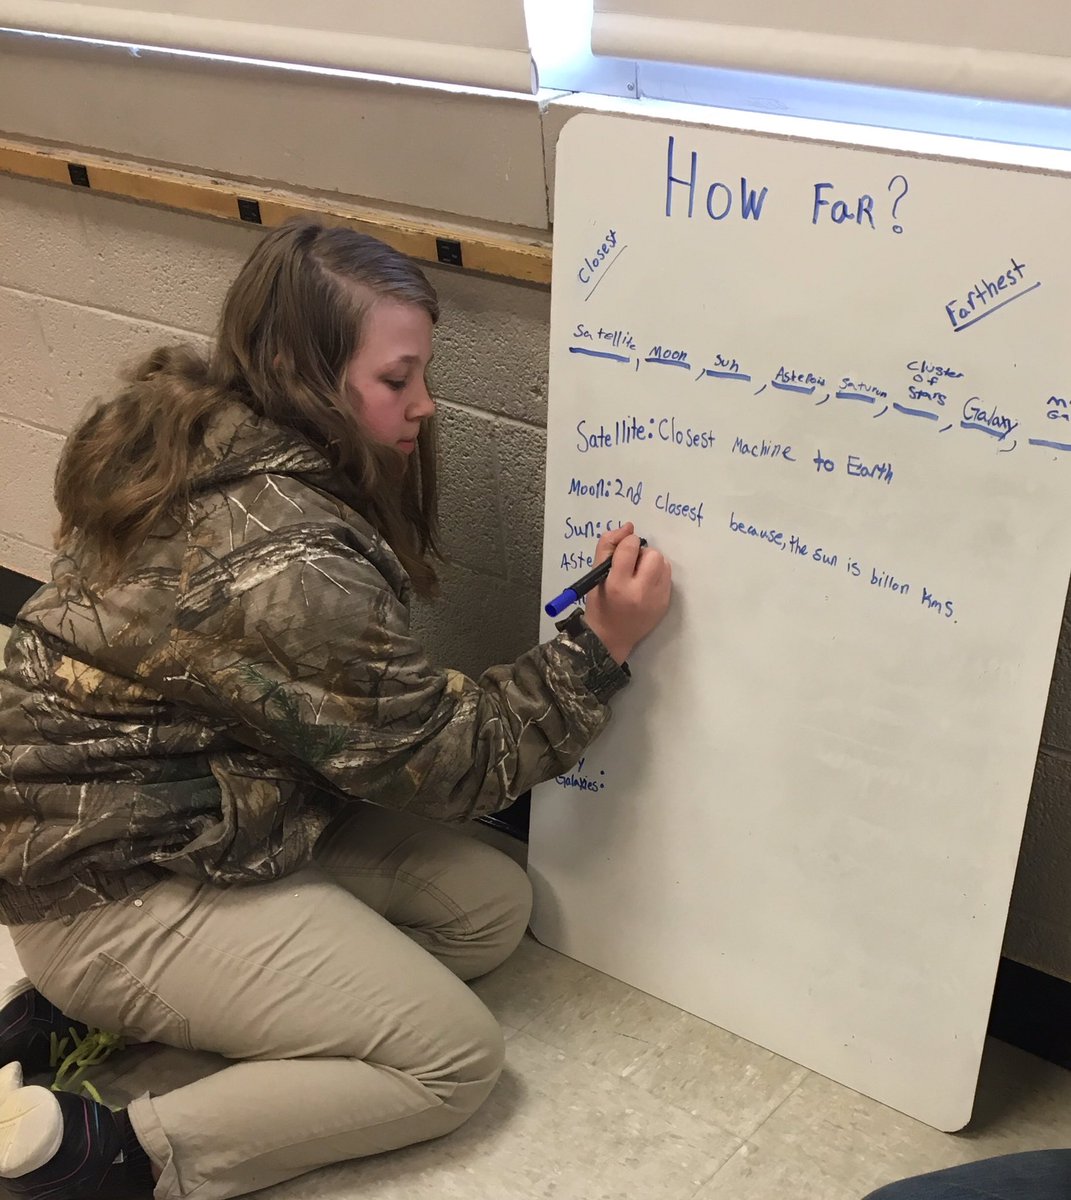 How FaR?
Closest
Farthest
Satellite, Moon, Sun, Asteroid, Saturun, Cluster Of Stars, Galaxy,
Satellite: Closest Machine to Earth
Moon: 2nd closest because, the sun is billon kms.
Sun:
Galaxies: